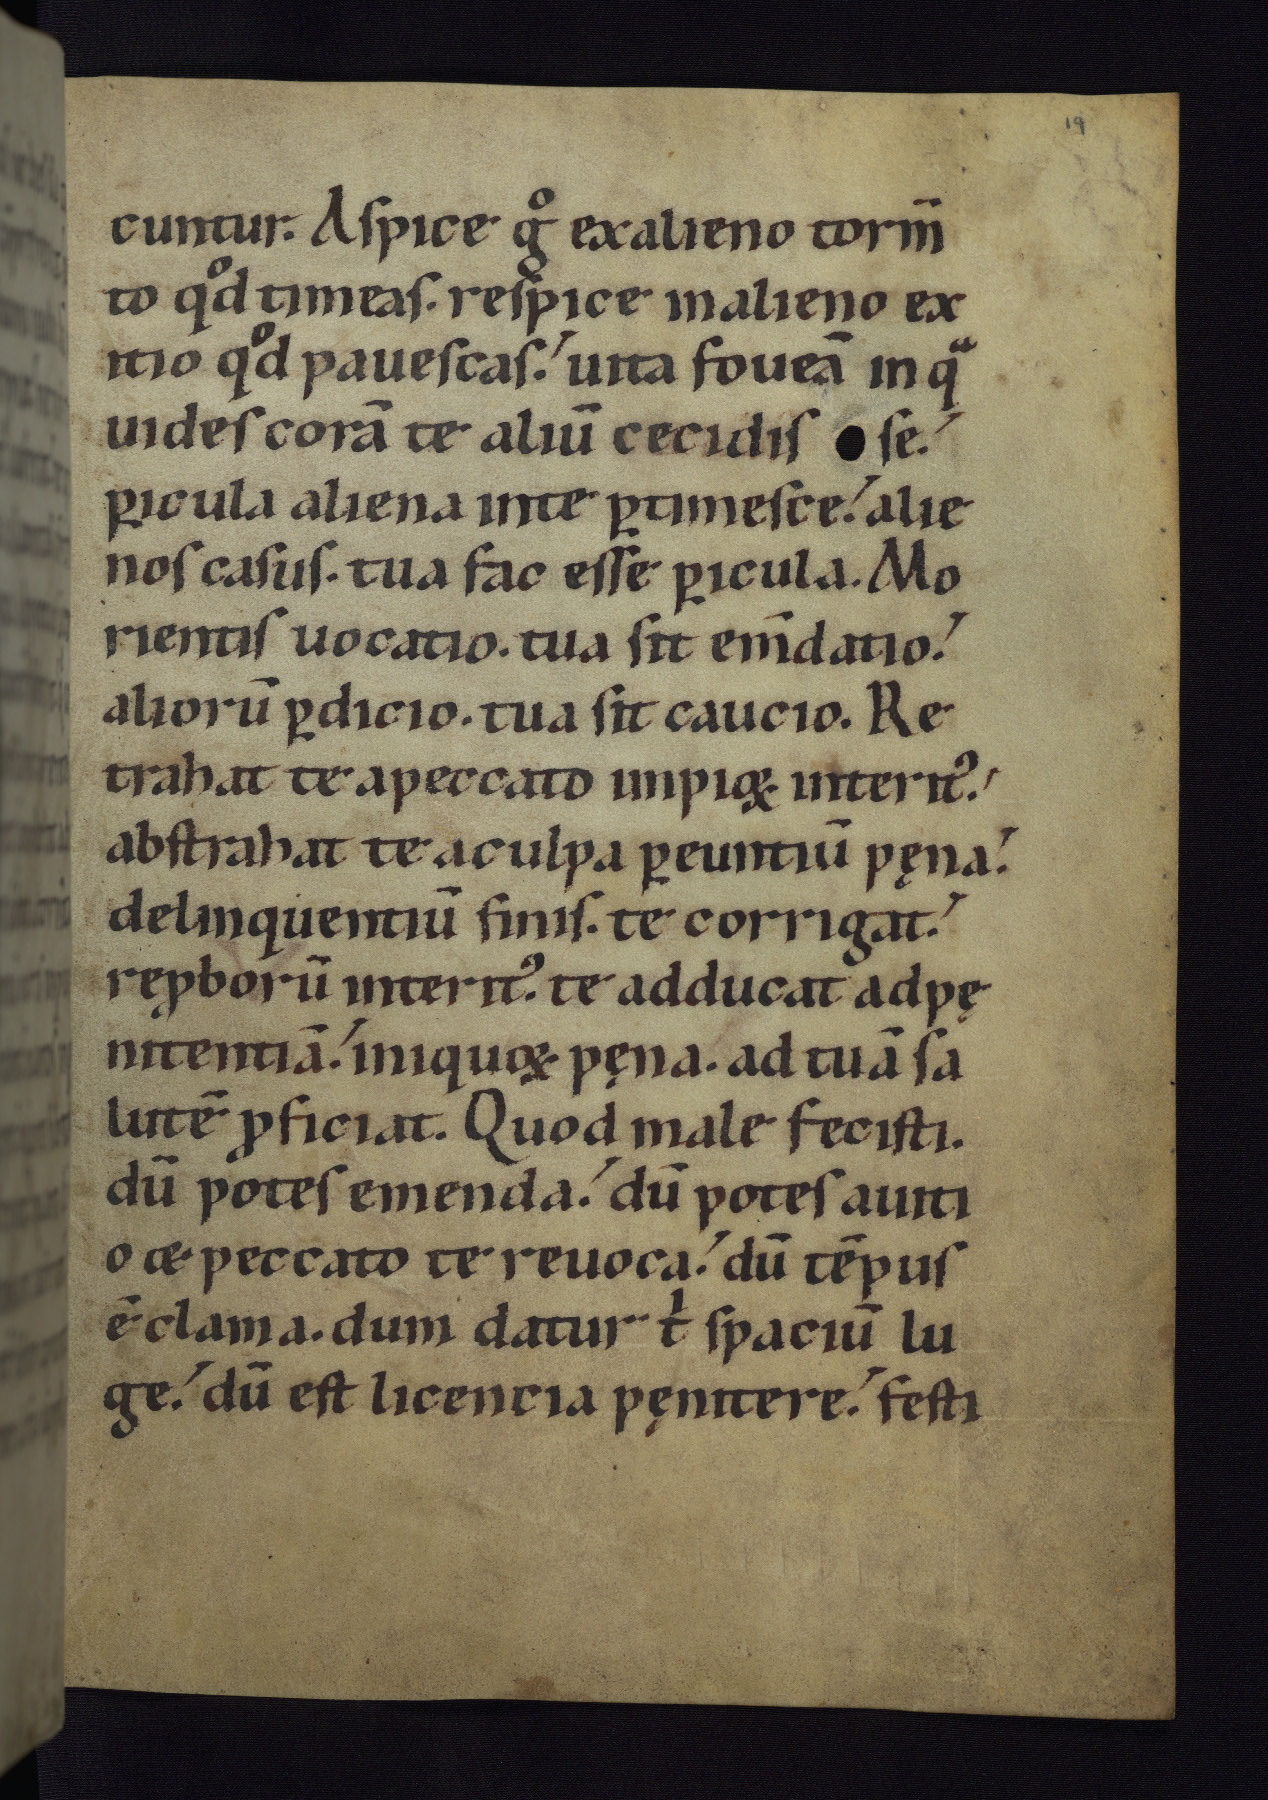 19
cuntur. Aspice gͦ exalieno torm̄
to qͦd timeas. respice inalieno ex
itio qͦd pauescas.' uita foueā in qᷓ
uides corā te aliū cecidis se.'
ꝑicula aliena inte ꝑtimesce.' alie
nos casus. tua fac esse ꝑicula. Mo
rientis uocatio. tua sit em̄datio.'
aliorū ꝑdicio. tua sit caucio. Re
trahat te apeccato impioꝝ interitꝰ.'
abstrahat te aculpa ꝑeuntiū pęna.'
delinquentiū finis. te corrigat.'
reꝓborū interitꝰ. te adducat adpę
nitentiā.' iniquoꝝ pęna. ad tuā sa
lutē ꝓficiat. Quod male fecisti.
dū potes emenda.' dū potes auiti
o & peccato te reuoca.' dū tēpus
ē clama. dum datur t̵ spaciū lu
ge.' dū est licencia pęnitere.' festi